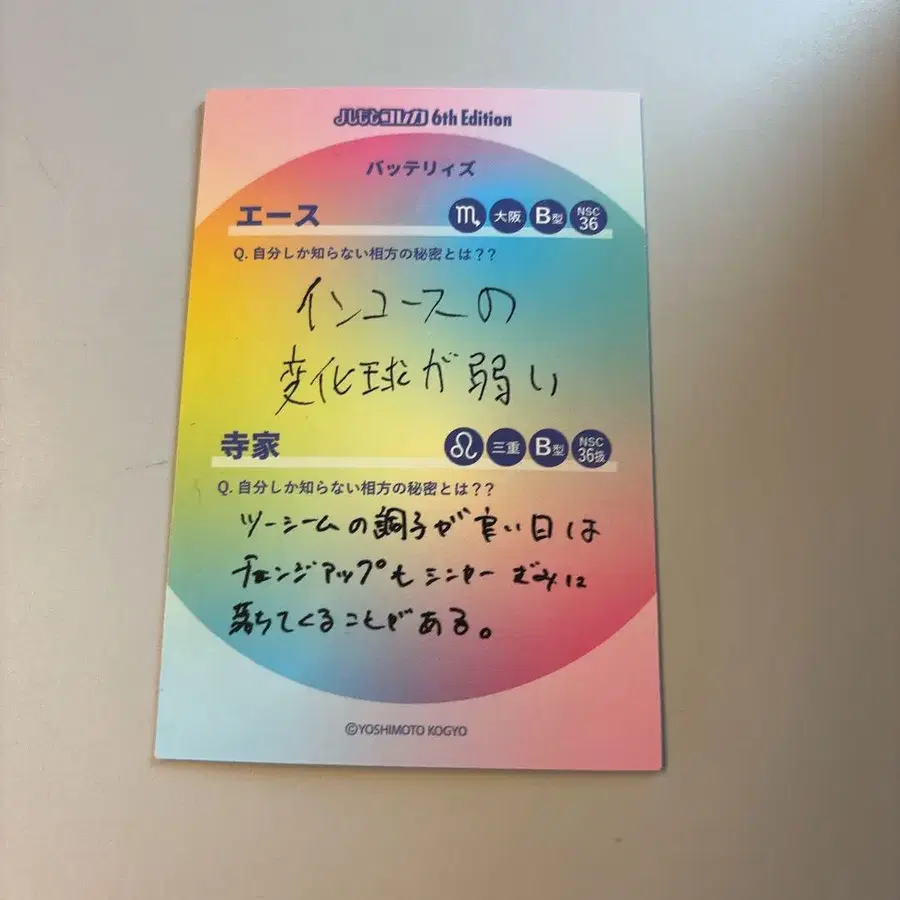 よしもとコレカ 6th Edition
バッテリィズ
エース ♏ 大阪 B型 NSC 36
Q. 自分しか知らない相方の秘密とは??
インコースの
変化球が弱い
寺家 ♌ 三重 B型 NSC 36抜
Q. 自分しか知らない相方の秘密とは??
ツーシームの調子が良い日は
チェンジアップもシンカーぎみに
落ちてくることがある。
©YOSHIMOTO KOGYO